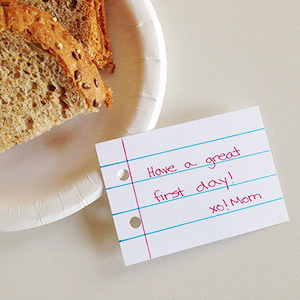 Have a great
first day!
xo! Mom